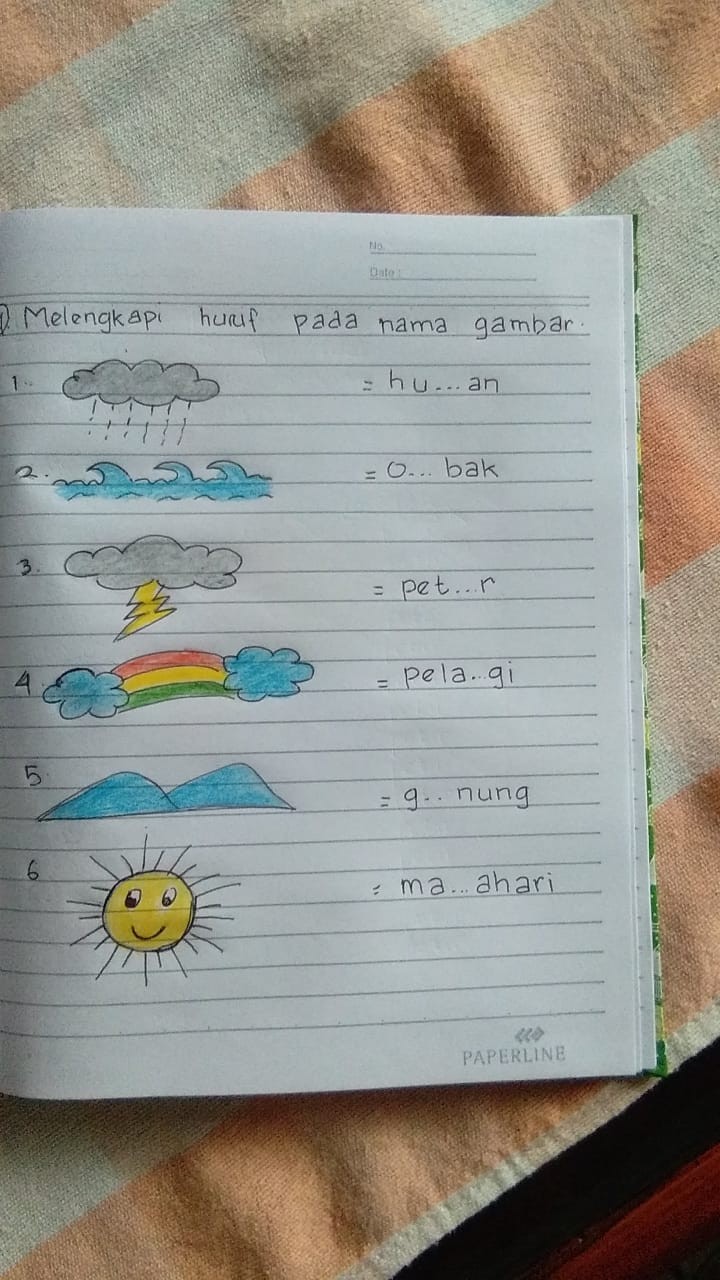 No.
Date :
Melengkapi huruf pada nama gambar.
1. = hu...an
2. = o... bak
3. = pet...r
4. = pela..gi
5. = g.. nung
6 = ma... ahari
PAPERLINE